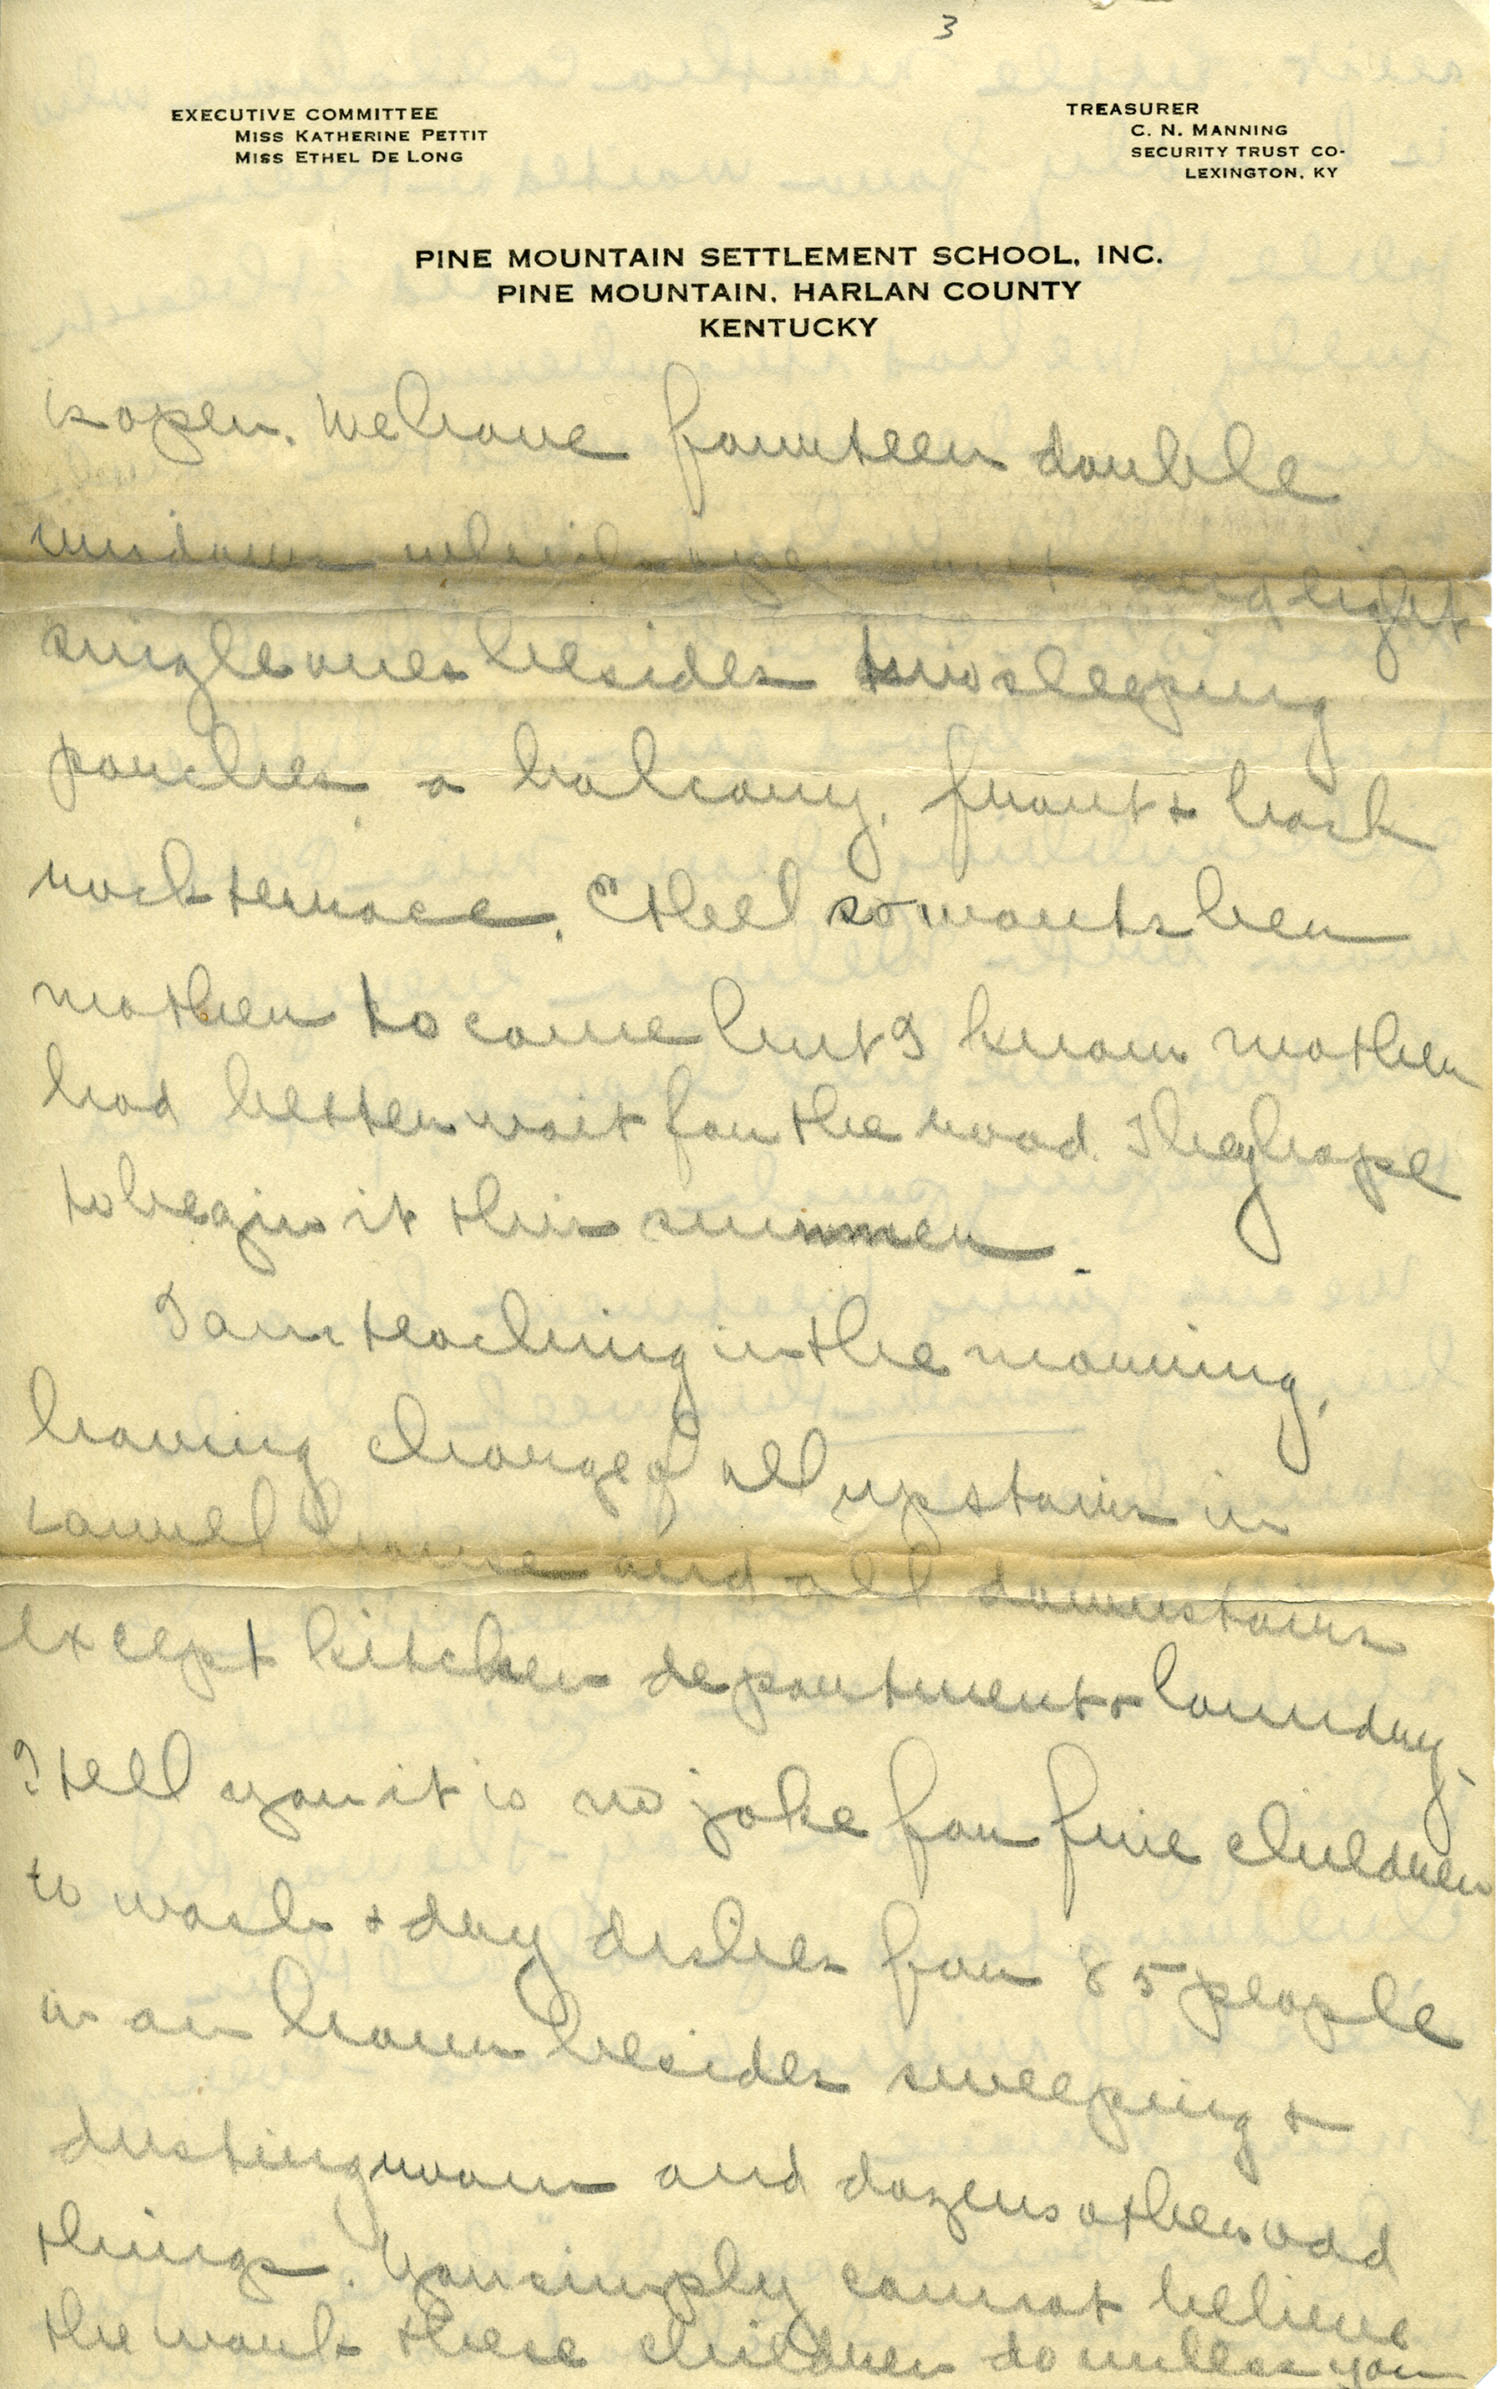 3
EXECUTIVE COMMITTEE
MISS KATHERINE PETTIT
MISS ETHEL DE LONG
TREASURER
C. N. MANNING
SECURITY TRUST CO-
LEXINGTON, KY
PINE MOUNTAIN SETTLEMENT SCHOOL, INC.
PINE MOUNTAIN, HARLAN COUNTY
KENTUCKY
is open. We have fourteen double
windows which open out and eight
single ones besides two sleeping
porches a balcony, front & back
rock terrace. Ethel so wants her
mother to come but I know mother
had better wait for the road. They hope
to begin it this summer.
I am teaching in the morning,
having charge of all upstairs in
Laurel house and all downstairs
except kitchen department & laundry.
I tell you it is no joke for five children
to wash & dry dishes for 85 people
in an hour besides sweeping &
dusting room and dozens other odd
things. You simply cannot believe
the work these children do unless you